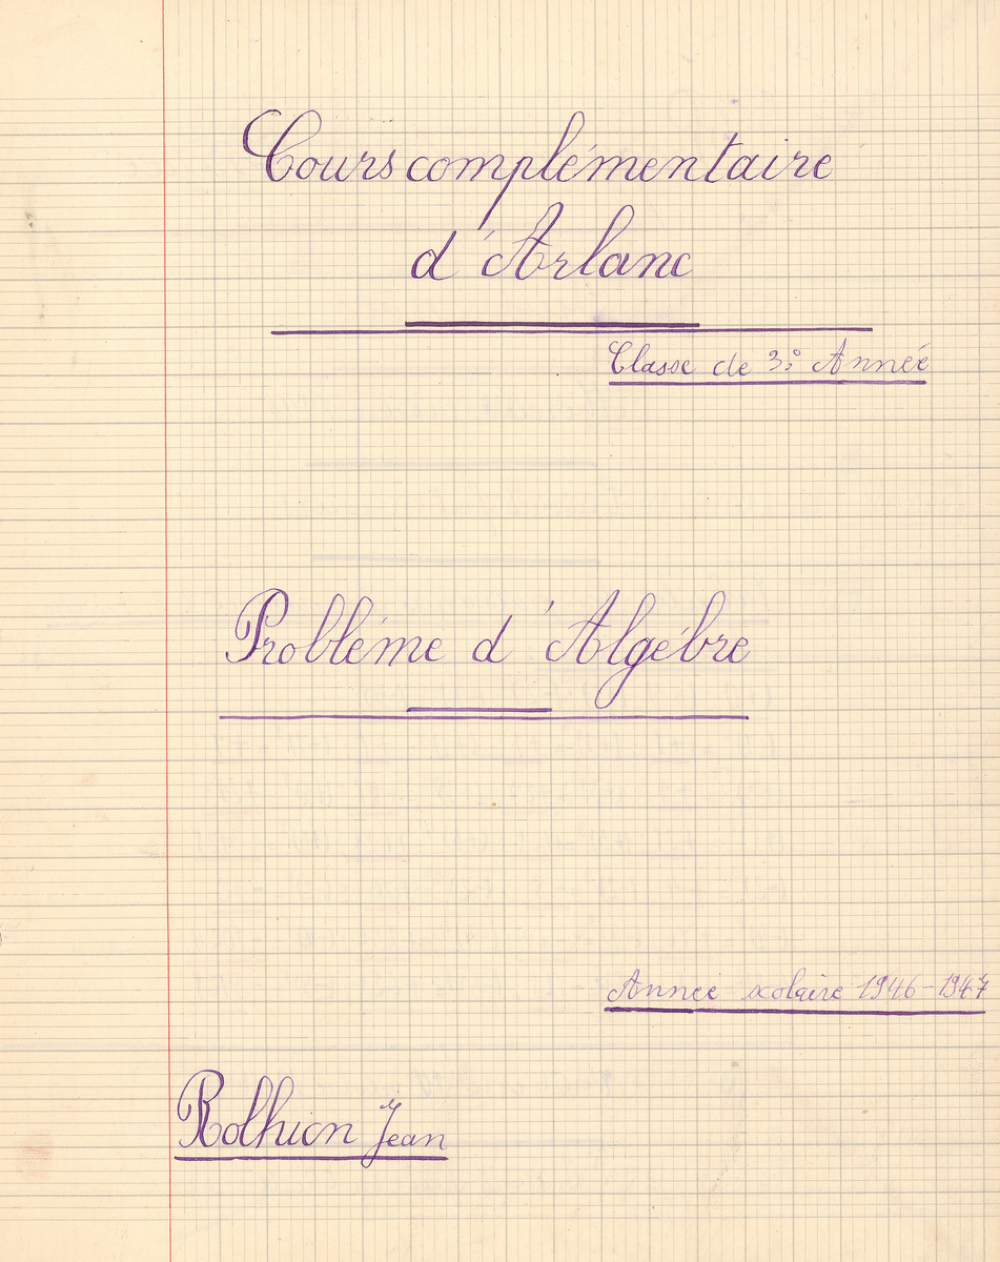 Cours complémentaire
d'Arlanc
Classe de 3e Année
Problème d'Algèbre
Année scolaire 1946-1947
Rolhion Jean